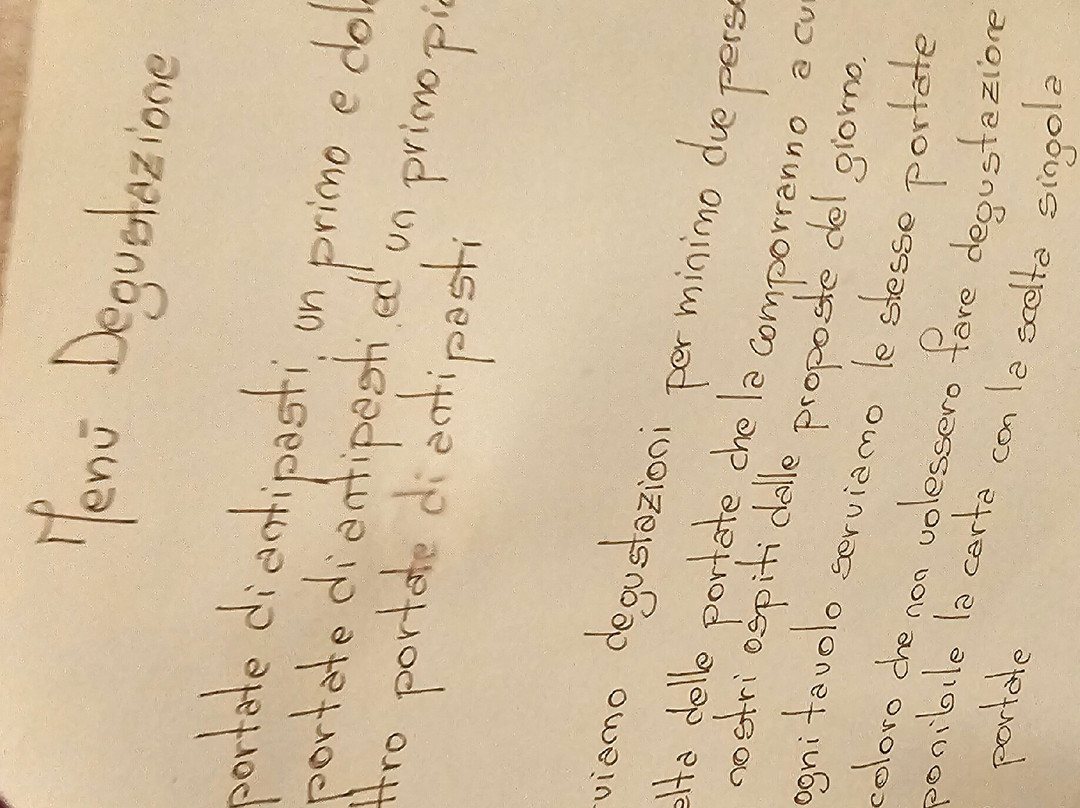 Menù Degustazione
portate di antipasti, un primo e dol
portate di antipasti ed un primo pia
ttro portate di antipasti
viamo degustazioni per minimo due perso
elta delle portate che la comporranno a cur
nostri ospiti dalle proposte del giorno.
ogni tavolo serviamo le stesse portate
coloro che non volessero fare degustazione
ponibile la carta con la scelta singola
portate